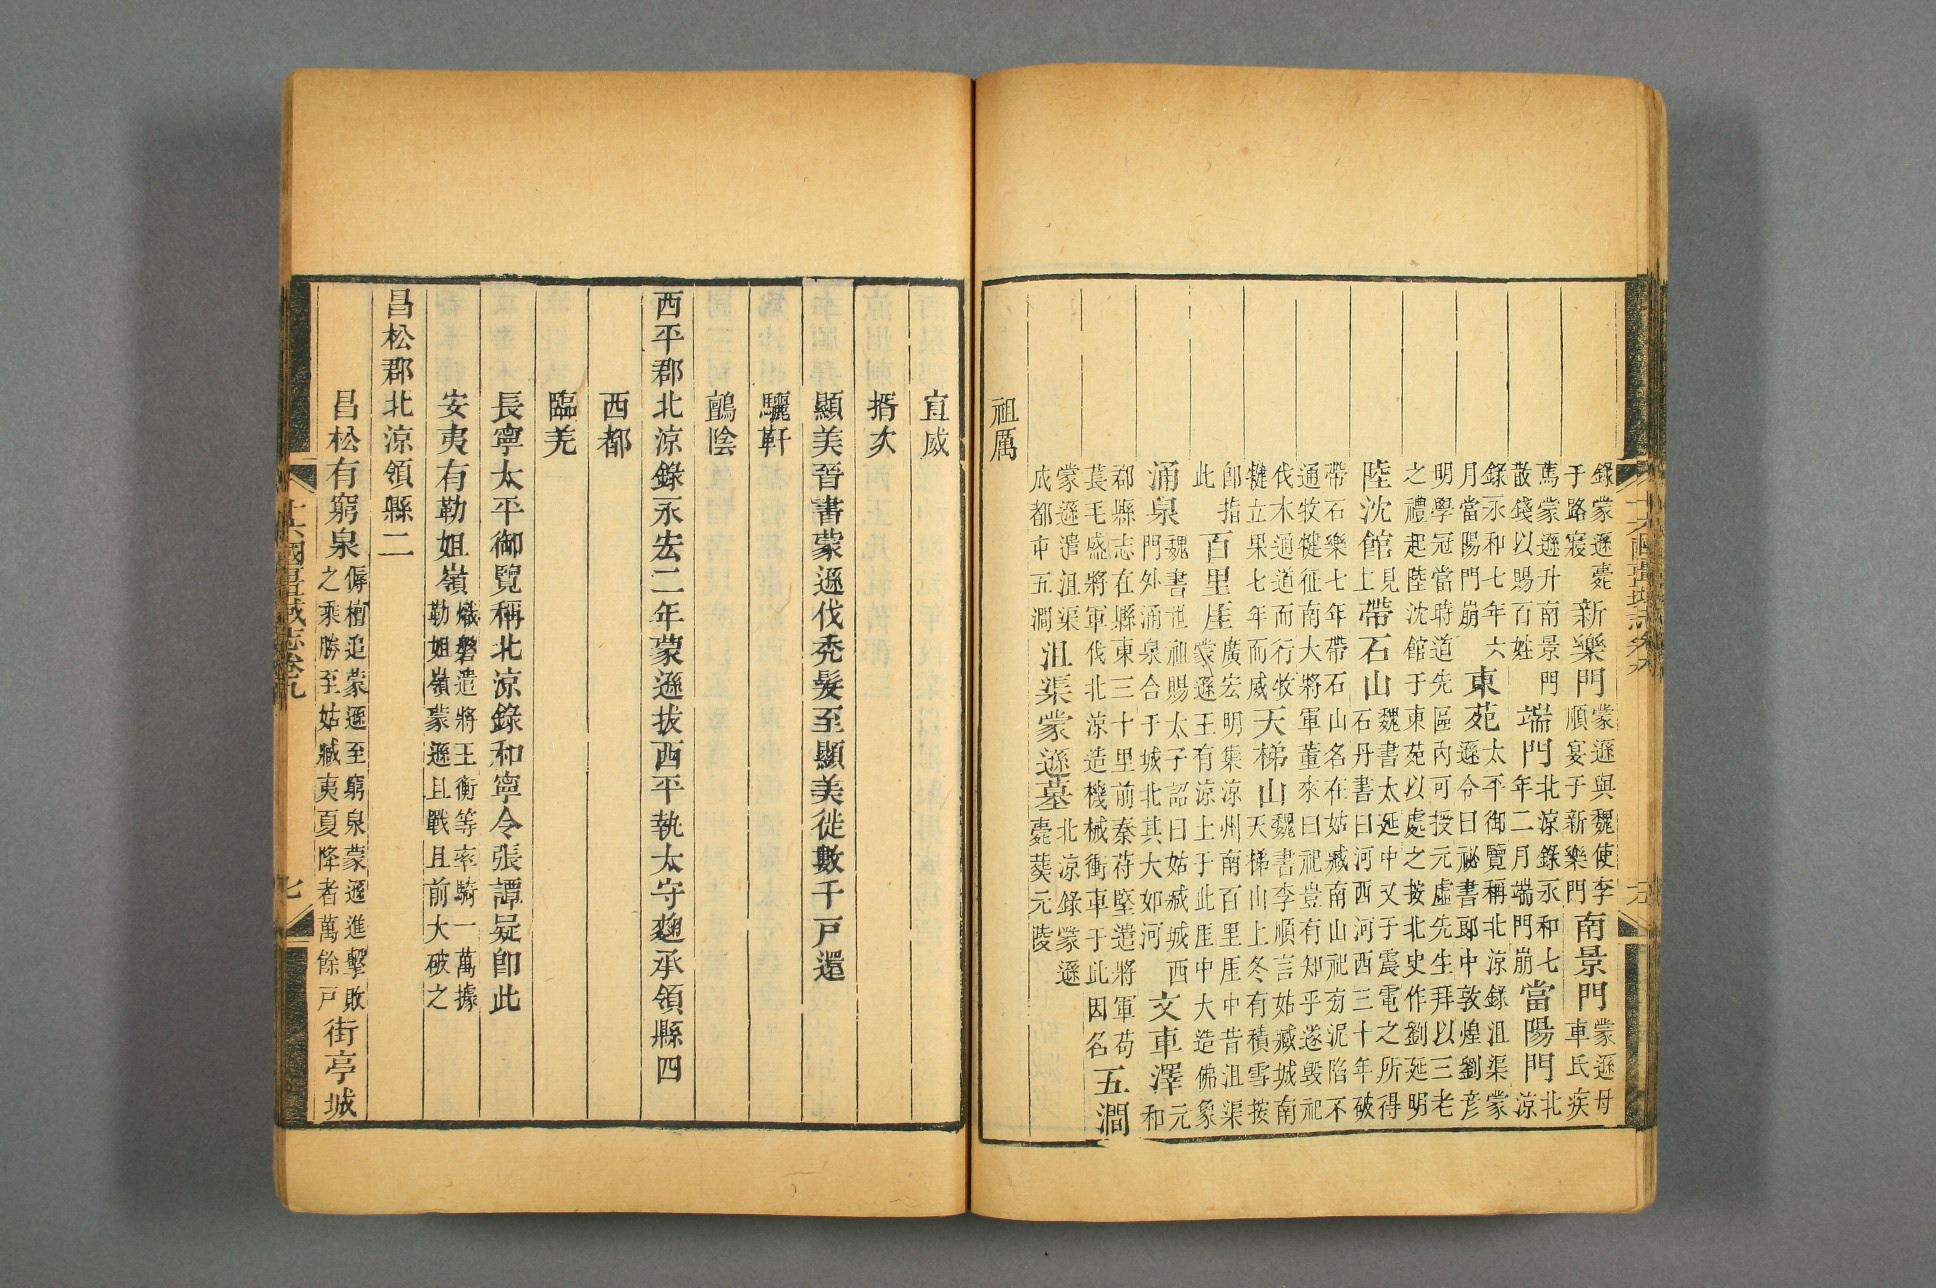 錄蒙遜薨于路寢新樂門蒙遜與魏使李順宴于新樂門南景門蒙遜母車氏疾
篤蒙遜升南景門散錢以賜百姓端門北涼錄永和七年二月端門崩當陽門北涼
錄永和七年六月當陽門崩東苑太平御覽稱北涼錄沮渠蒙遜令曰祕書郎中敦煌劉彥
明學冠當時道先區內可授元虛先生拜以三老之禮起陸沈館于東苑以處之按北史作劉延明
陸沈館見上帶石山魏書太延中又于震電之所得石丹書曰河西河西三十年破
帶石樂七年帶石山名在姑臧南山祀旁泥陷不通牧犍征南大將軍董來曰祀豈有知乎遂毀祀
伐木通道而行牧犍立果七年而滅天梯山魏書李順言姑臧城南天梯山上冬有積雪按
卽指此百里厓廣宏明集涼州南百里厓中昔沮渠蒙遜王有涼土于此厓中大造佛象
涌泉魏書世祖賜太子詔曰姑臧城西門外涌泉合于城北其大如河文車澤元和
郡縣志在縣東三十里前秦苻堅遣將軍苟萇毛盛將軍伐北涼造機械衝車于此因名五澗
蒙遜遣沮渠成都屯五澗沮渠蒙遜墓北涼錄蒙遜薨葬元陵
祖厲
宜威
揟次
顯美晉書蒙遜伐禿髮至顯美徙數千戶還
驪靬
鸇陰
西平郡北涼錄永宏二年蒙遜拔西平執太守麴承領縣四
西都
臨羌
長寧太平御覽稱北涼錄和寧令張譚疑卽此
安夷有勒姐嶺熾磐遣將王衡等率騎一萬據勒姐嶺蒙遜且戰且前大破之
昌松郡北涼領縣二
昌松有窮泉傉檀追蒙遜至窮泉蒙遜進擊敗之乘勝至姑臧夷夏降者萬餘戶街亭城
十六國疆域志卷九
七